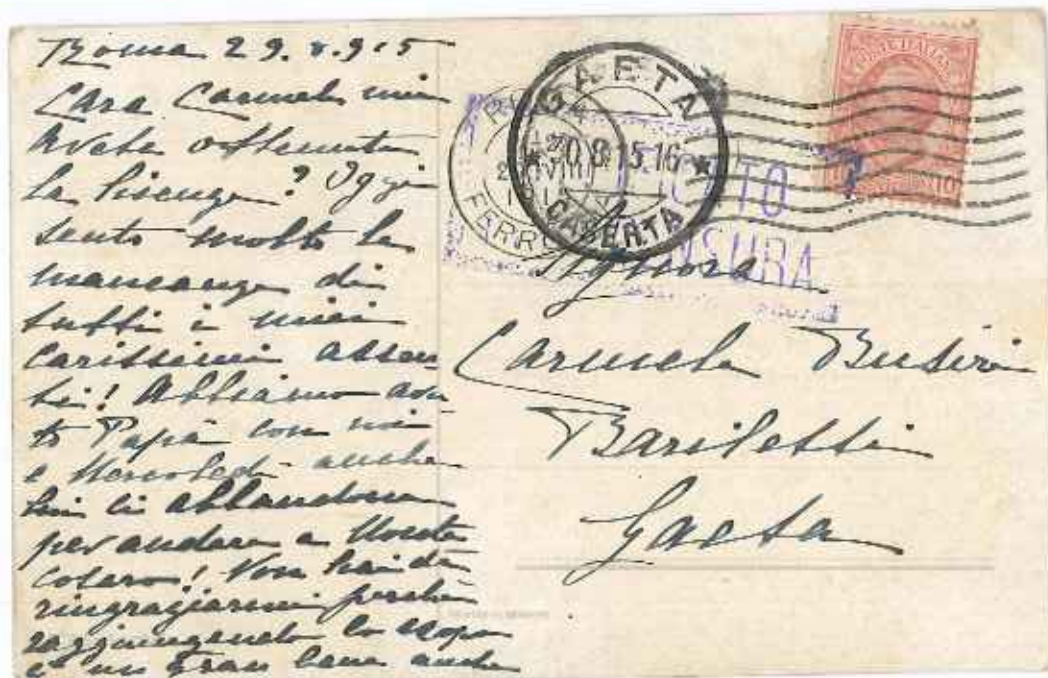 Roma 29.8.915
Cara Carmela mia
Avete ottenuta
la licenza? Oggi
sento molto la
mancanza di
tutti i miei
carissimi assen-
ti! Abbiamo avu
to Papà con noi
e Mercoledì anche
lui ci abbandona
per andare a
! Non hai da
ringraziarmi perchè
raggiungendo lo scopo
è un gran bene anche
GAETA
CASERTA
ROMA
FERROVIA
POSTE ITALIANE
10
Signora
Carmela Busiri
Gaeta